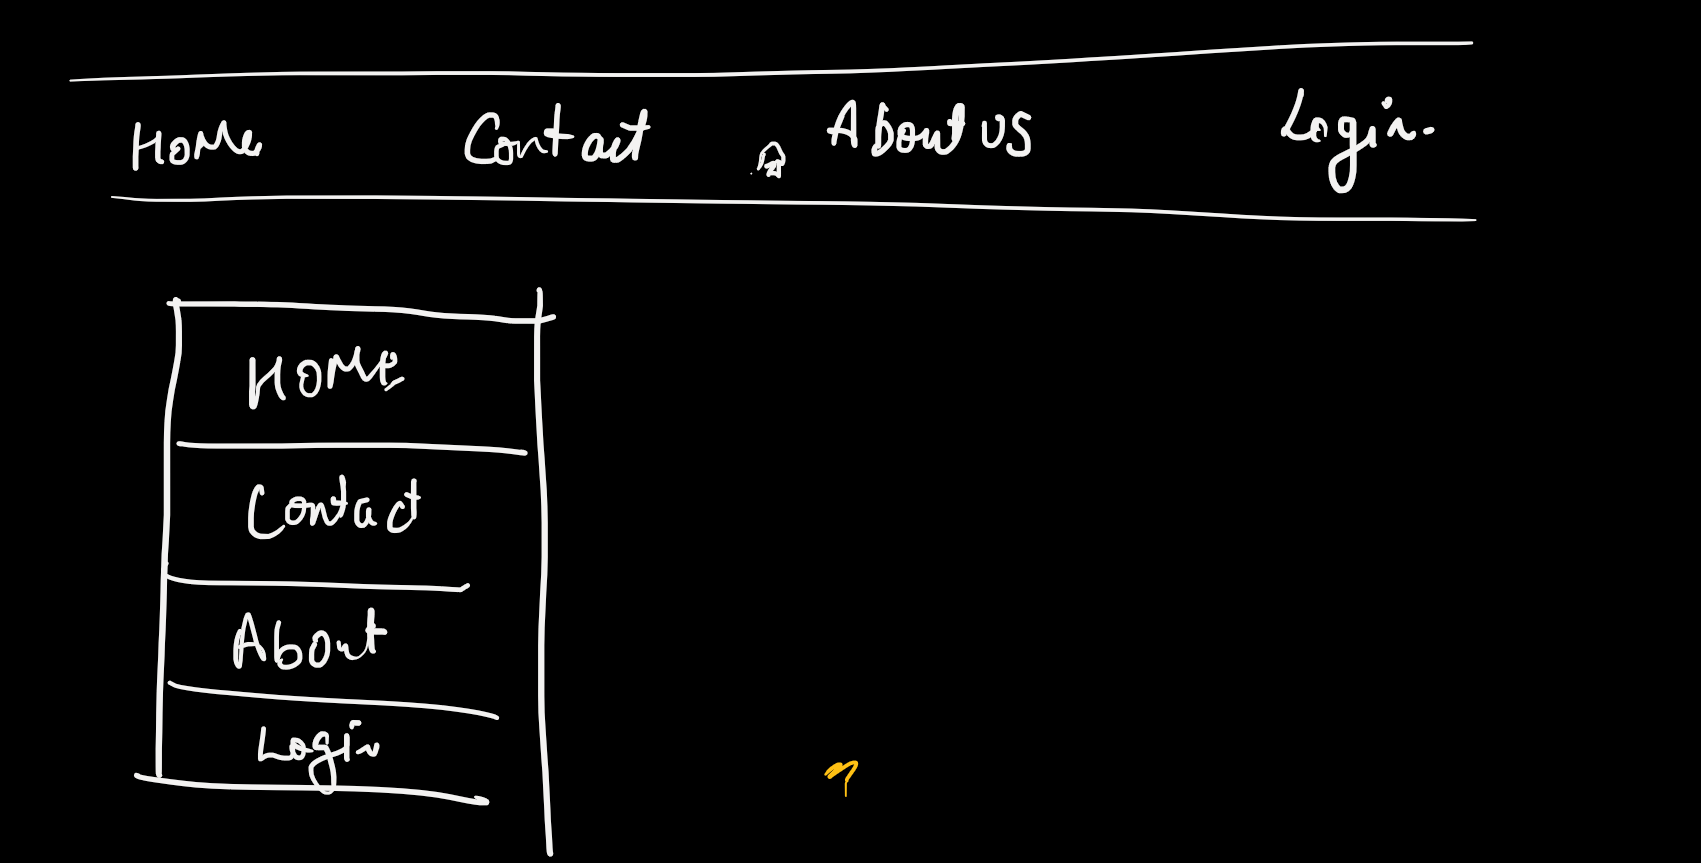 Home Contact About us Login.
Home
Contact
About
Login